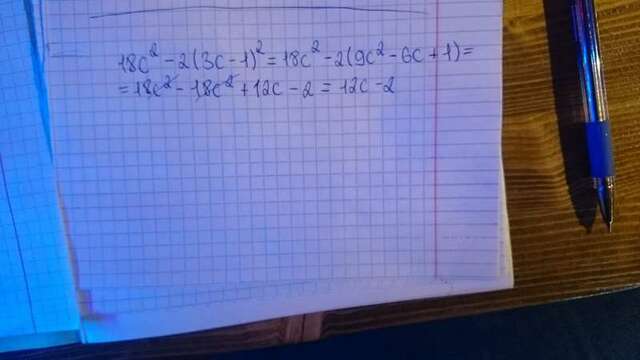 18c² - 2(3c - 1)² = 18c² - 2(9c² - 6c + 1) =
= 18c² - 18c² + 12c - 2 = 12c - 2